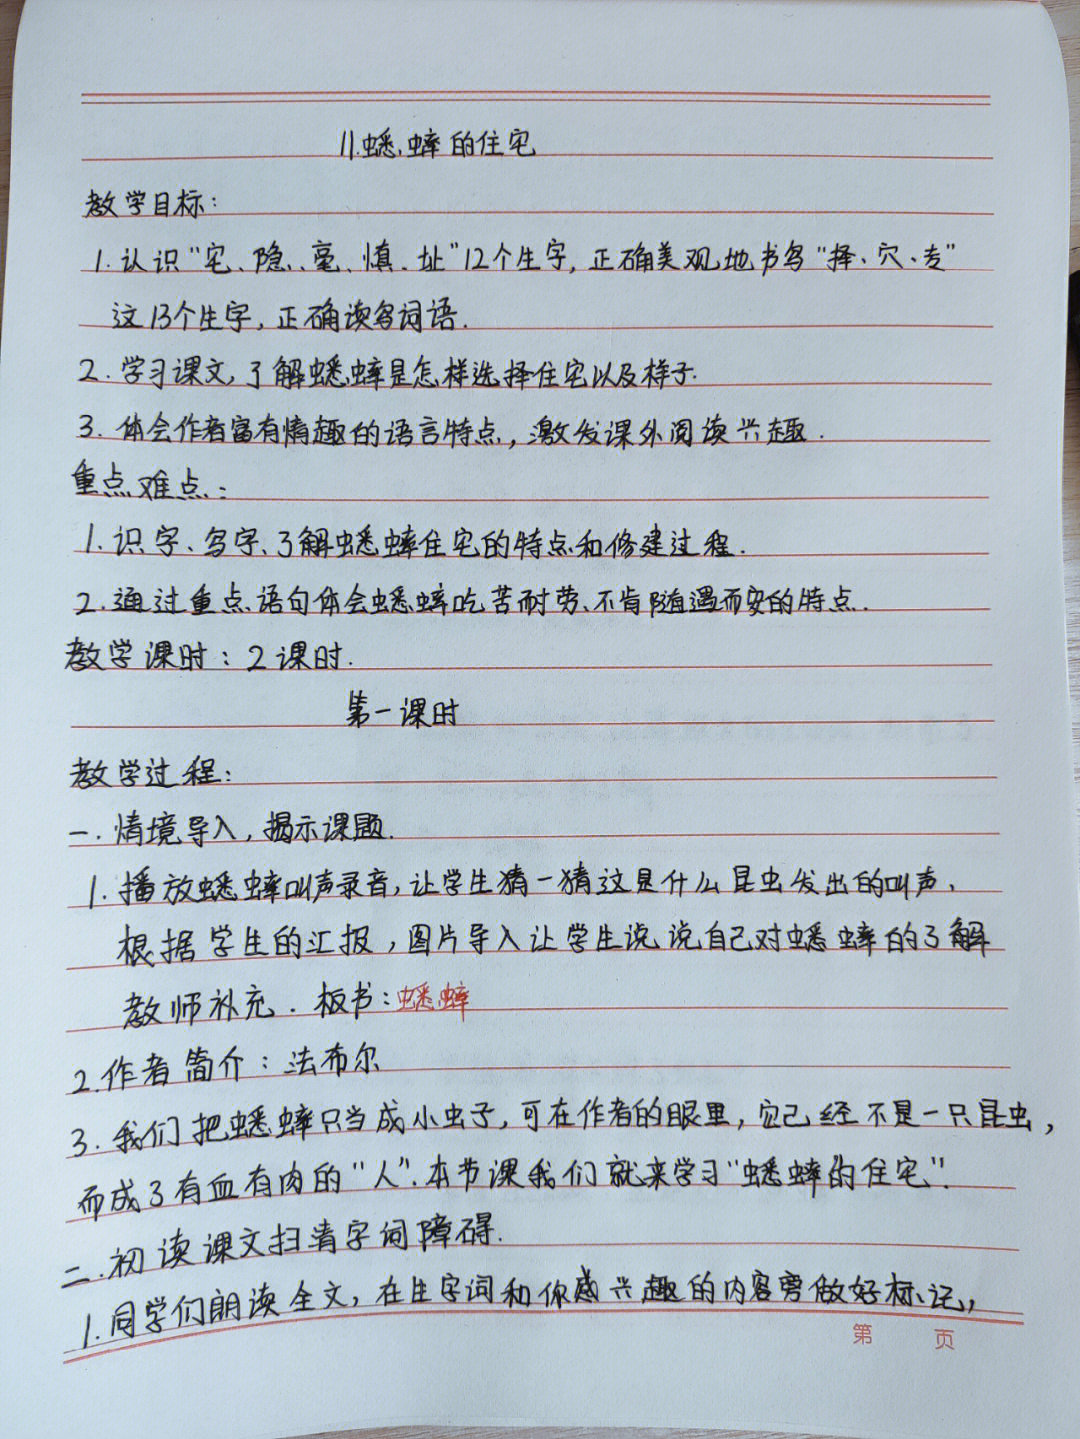 11.蟋蟀的住宅
教学目标:
1.认识“宅、隐、毫、慎、址”12个生字,正确美观地书写“择、穴、专”
这13个生字,正确读写词语.
2.学习课文,了解蟋蟀是怎样选择住宅以及样子.
3.体会作者富有情趣的语言特点,激发课外阅读兴趣.
重点难点:
1.识字、写字、了解蟋蟀住宅的特点和修建过程.
2.通过重点语句体会蟋蟀吃苦耐劳、不肯随遇而安的特点.
教学课时:2课时.
第一课时
教学过程:
一.情境导入,揭示课题.
1.播放蟋蟀叫声录音,让学生猜一猜这是什么昆虫发出的叫声,
根据学生的汇报,图片导入让学生说说自己对蟋蟀的了解
教师补充.板书:蟋蟀
2.作者简介:法布尔
3.我们把蟋蟀只当成小虫子,可在作者的眼里,它已经不是一只昆虫,
而成了有血有肉的“人”.本节课我们就来学习“蟋蟀的住宅”.
二.初读课文扫清字词障碍.
1.同学们朗读全文,在生字词和你感兴趣的内容旁做好标记,
第 页